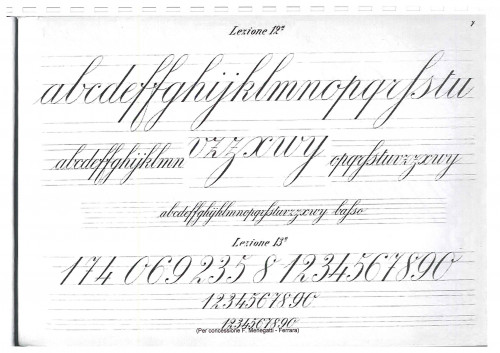 Lezione 12ª
7
abcdeffghijjklmnopqrſstu
abcdeffghijjklmn vzzxwy opqrſsturvzzxwy
abcdeffghijjklmnopqrſsturvzzxwy baſso
Lezione 13ª
174 069 235 8 1234567890
1234567890
1234567890
(Per concessione F. Menegatti - Ferrara)